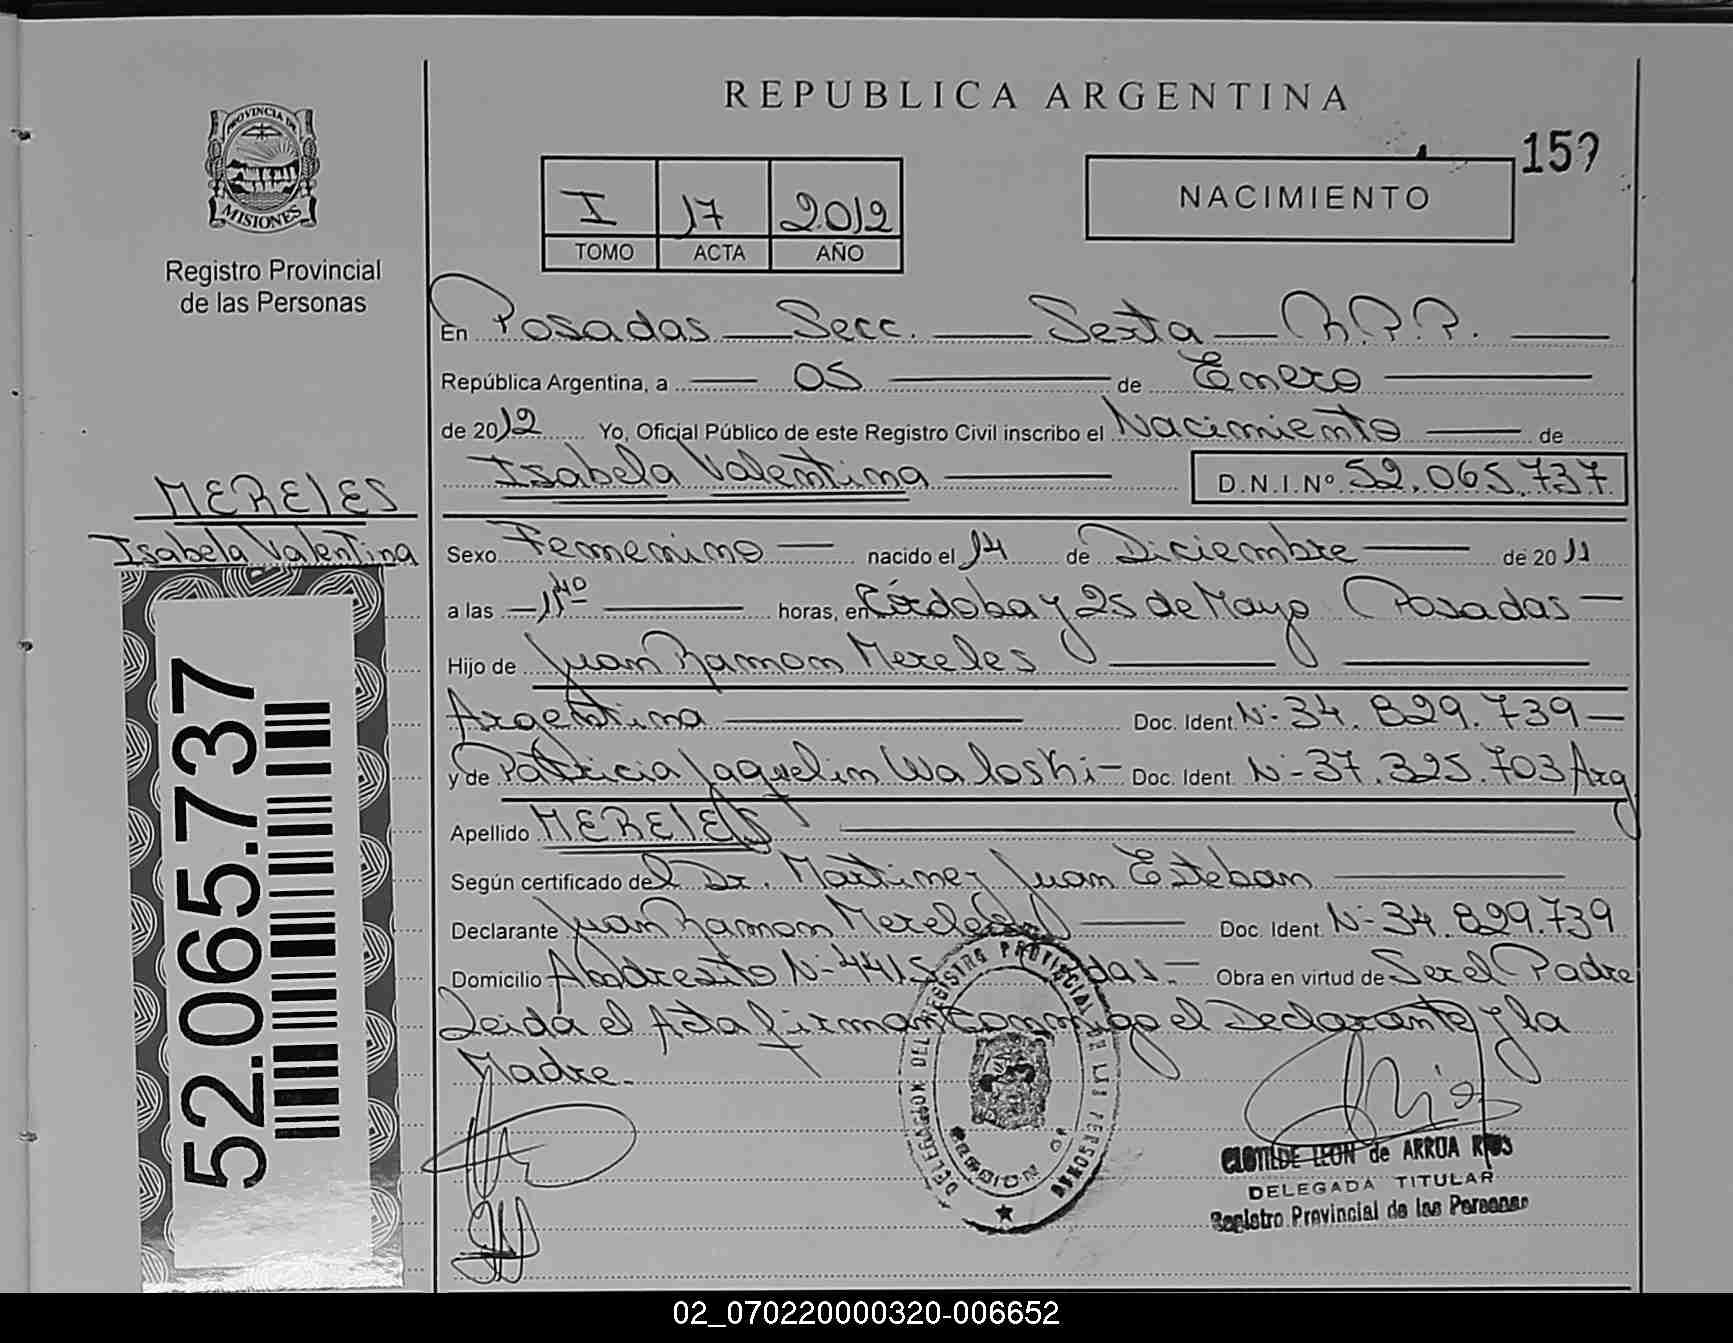 REPUBLICA ARGENTINA
PROVINCIA DE
MISIONES
Registro Provincial
de las Personas
I 17 2012
TOMO ACTA AÑO
NACIMIENTO
159
En Posadas Secc. Sexta R.P.P.
República Argentina, a 05 de Enero
de 2012 Yo, Oficial Público de este Registro Civil inscribo el Nacimiento de
Isabela Valentina D.N.I.Nº 52.065.737
MERELES
Isabela Valentina
Sexo Femenino nacido el 14 de Diciembre de 2011
a las 11 40 horas, en Córdoba y 25 de Mayo Posadas
Hijo de Juan Ramon Mereles
Argentina Doc. Ident. Nº 34.829.739
y de Patricia Jaquelin Waloski Doc. Ident. Nº 37.325.703 Arg
Apellido MERELES
Según certificado del Dr. Martinez Juan Esteban
Declarante Juan Ramon Mereles Doc. Ident. Nº 34.829.739
Domicilio Nº 4415 Obra en virtud de Ser el Padre
Leida el Acta firman conmigo el Declarante y la
Madre.
52.065.737
DELEGACION DEL REGISTRO PROVINCIAL DE LAS PERSONAS
CLOTILDE LEON de ARRUA RIOS
DELEGADA TITULAR
Registro Provincial de las Personas
02_070220000320-006652